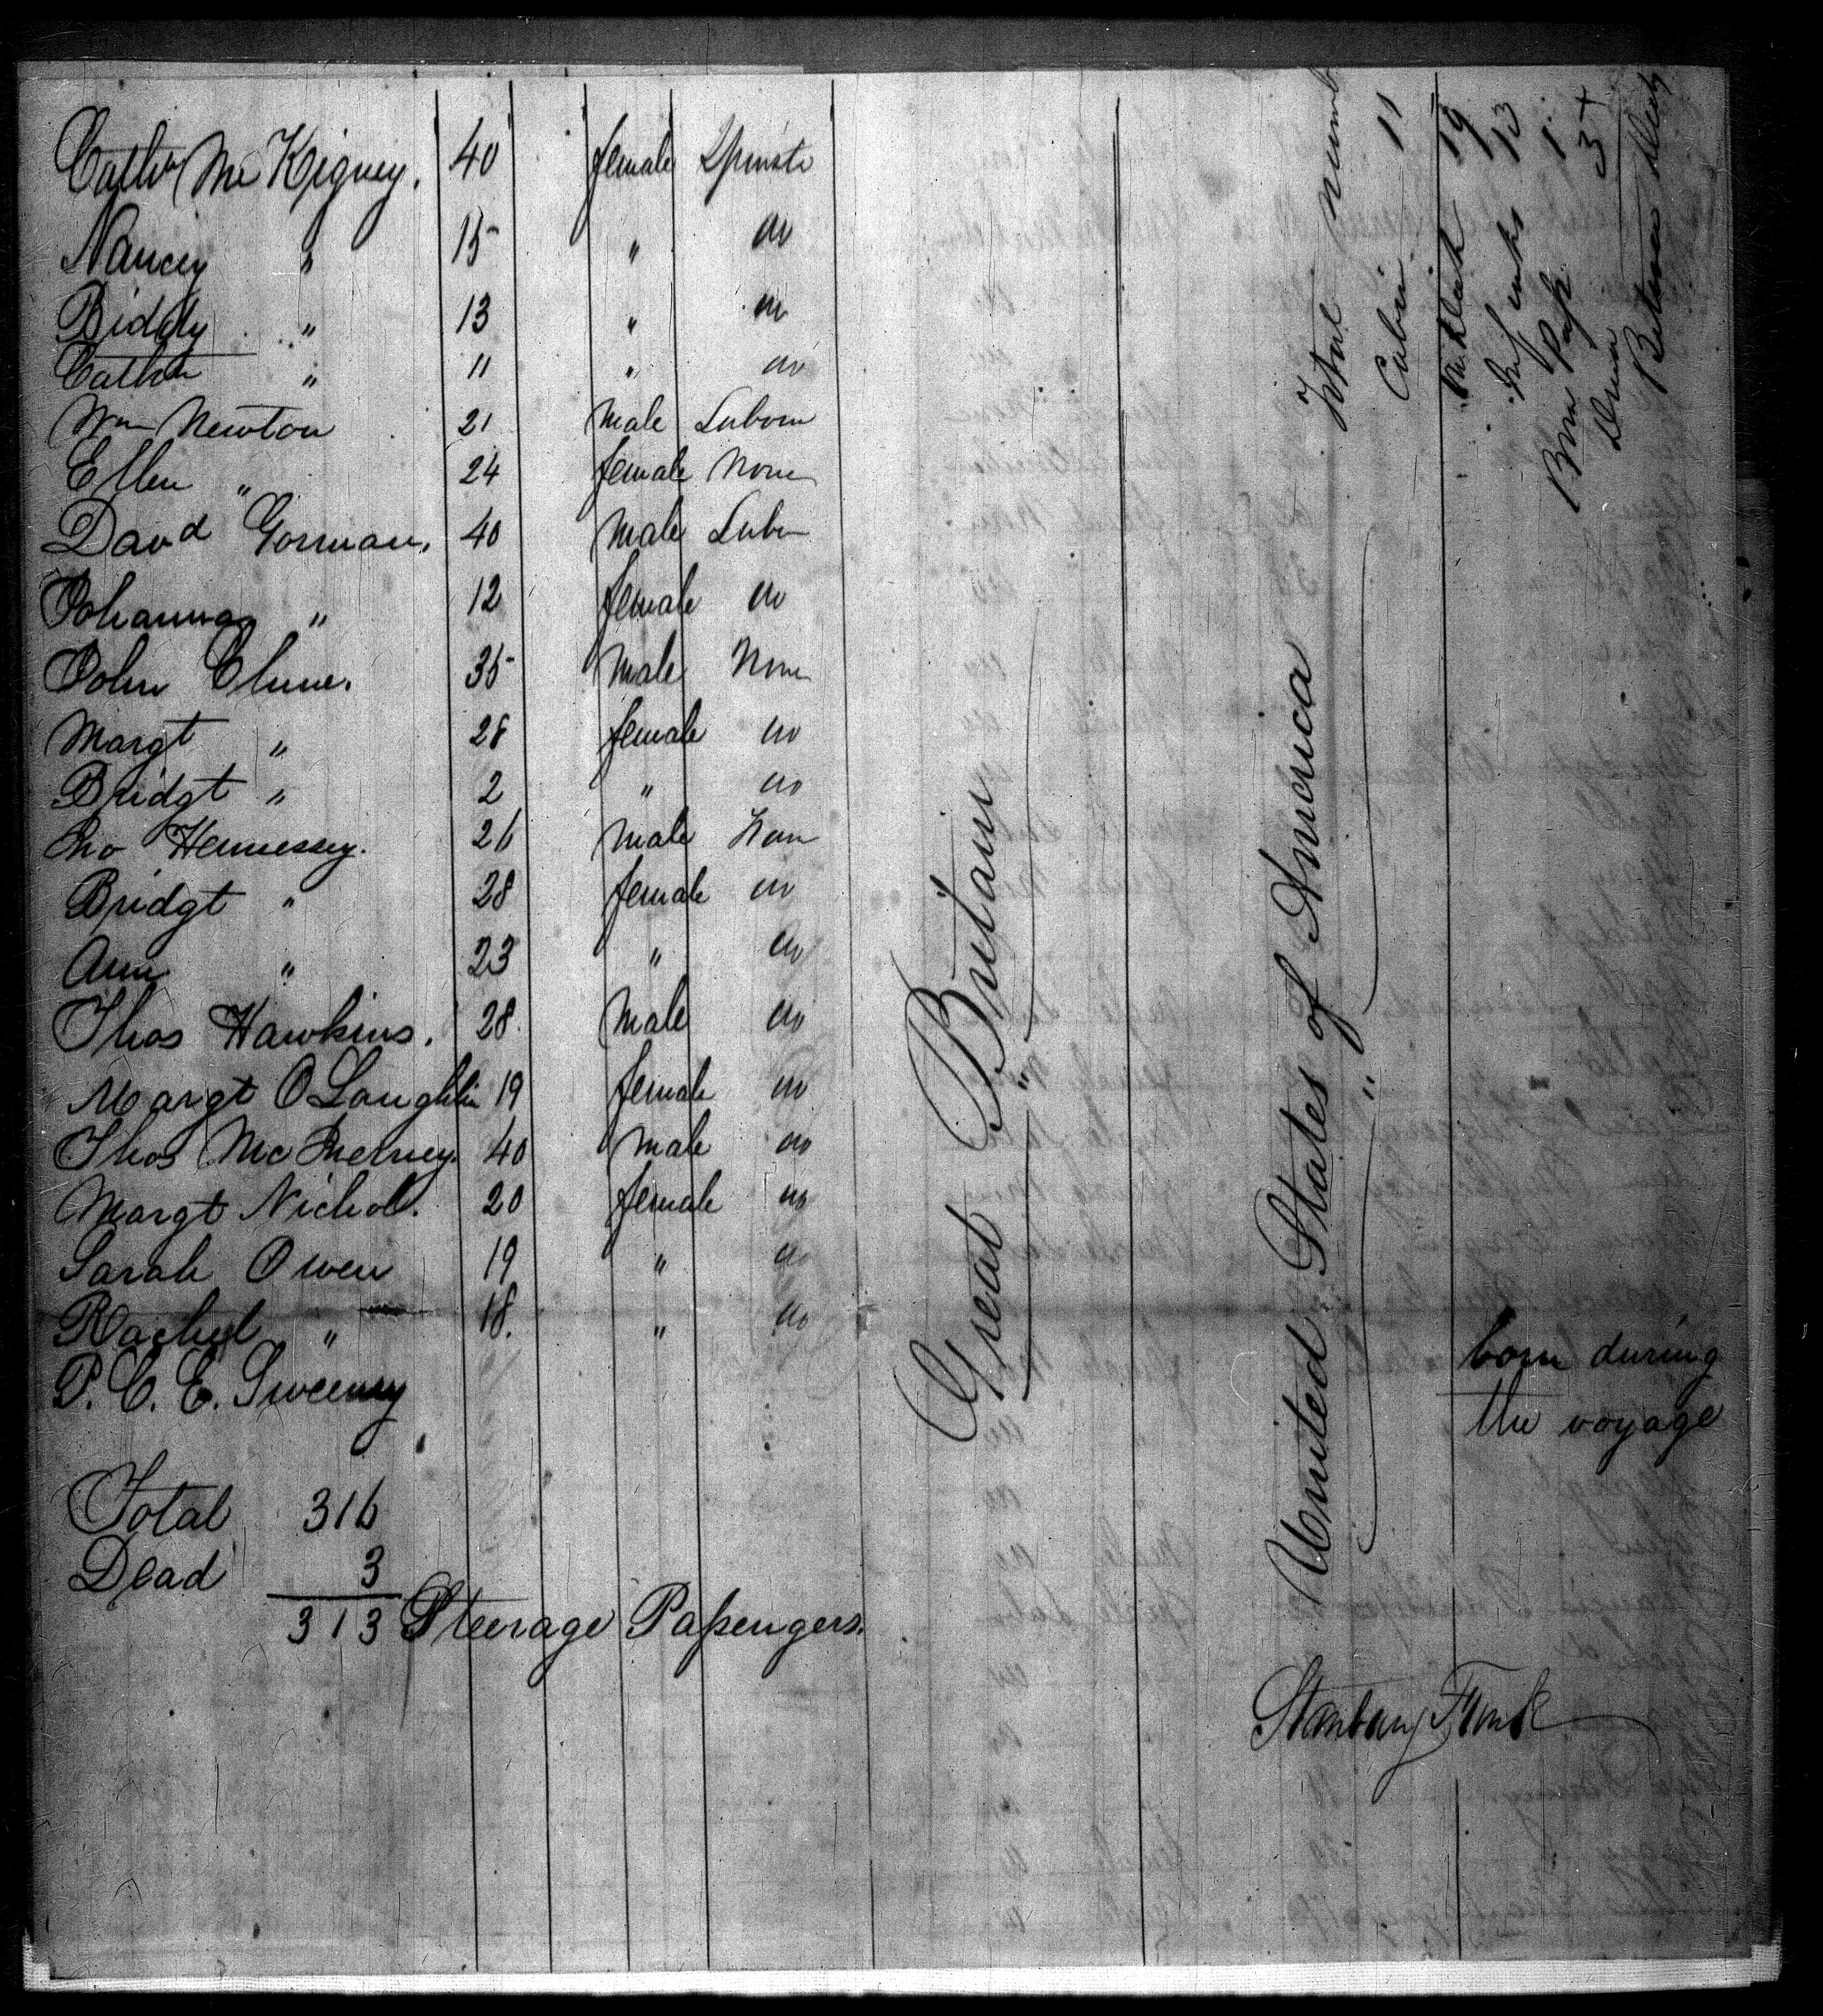 Cathn McKigney. 40 female Spinstr
Nancy " 15 " do
Biddy " 13 " do
Cathn " 11 " do
Wm Newton 21 Male Labour
Ellen " 24 female None
Davd Gorman, 40 Male Labr
Johanna " 12 female do
John Clune. 35 Male None
Margt " 28 female do
Bridgt " 2 " do
Jno Hennessy. 26 Male Non
Bridgt " 28 female do
Ann " 23 " do
Thos Hawkins. 28. Male do
Margt O Loughlin 19 female do
Thos McInerney. 40 Male do
Margt Nichol. 20 female do
Sarah Owen 19 " do
Rachel " 18. " do
P. C. E. Sweeney born during
the voyage
Total 316
Dead 3
313 Steerage Passengers.
Great Britain
"
United States of America
"
Total Numb
Cabin 11
19
Infants 13
Born 1
3+
Stanbury Funk